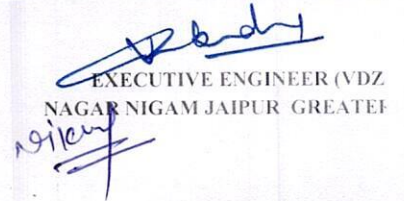 EXECUTIVE ENGINEER (VDZ
NAGAR NIGAM JAIPUR GREATER